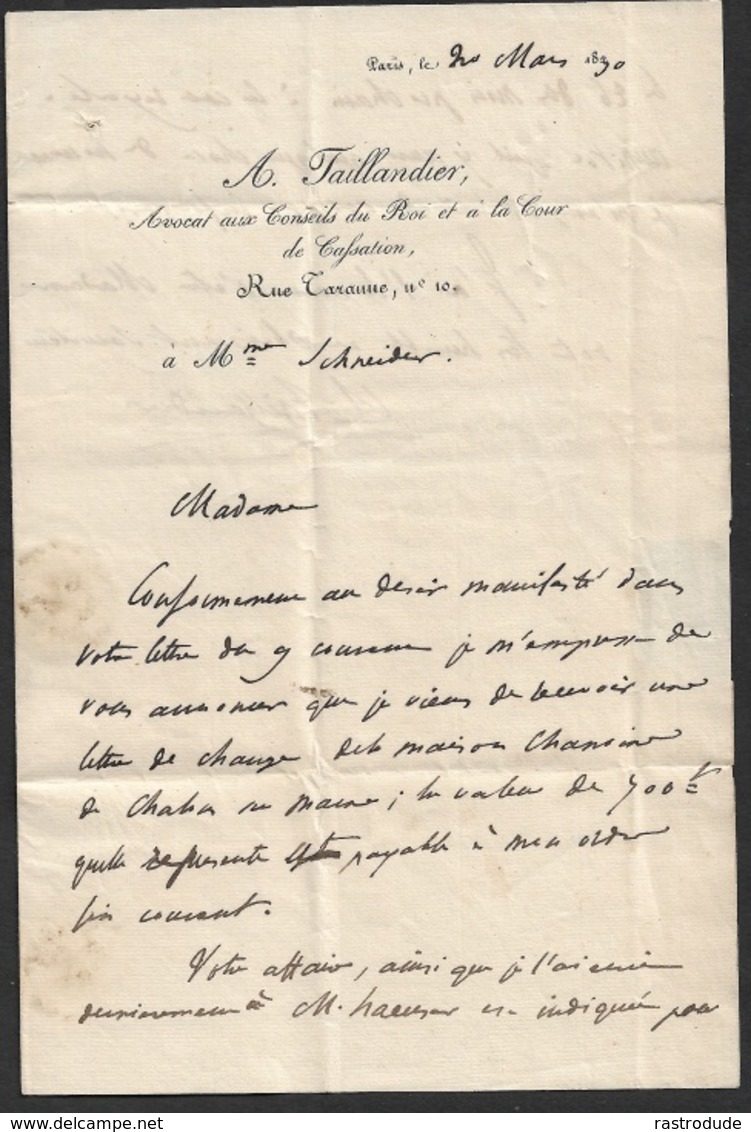 Paris, le 20 Mars 1830
A. Taillandier,
Avocat aux Conseils du Roi et à la Cour
de Cassation,
Rue Taranne, nº 10.
à Mme Schneider.
Madame
Conformement au desir manifesté dans
votre lettre du 9 courant je m'empresse de
vous annoncer que je viens de recevoir une
lettre de change de la maison Chanoine
de Chalon sur marne ; la valeur de 700 f
qu'elle represente est payable à mon ordre
fin courant.
Votre affaire, ainsi que je l'ai ecrit
dernierement à M. est indiquée pour
www.delcampe.net
rastrodude